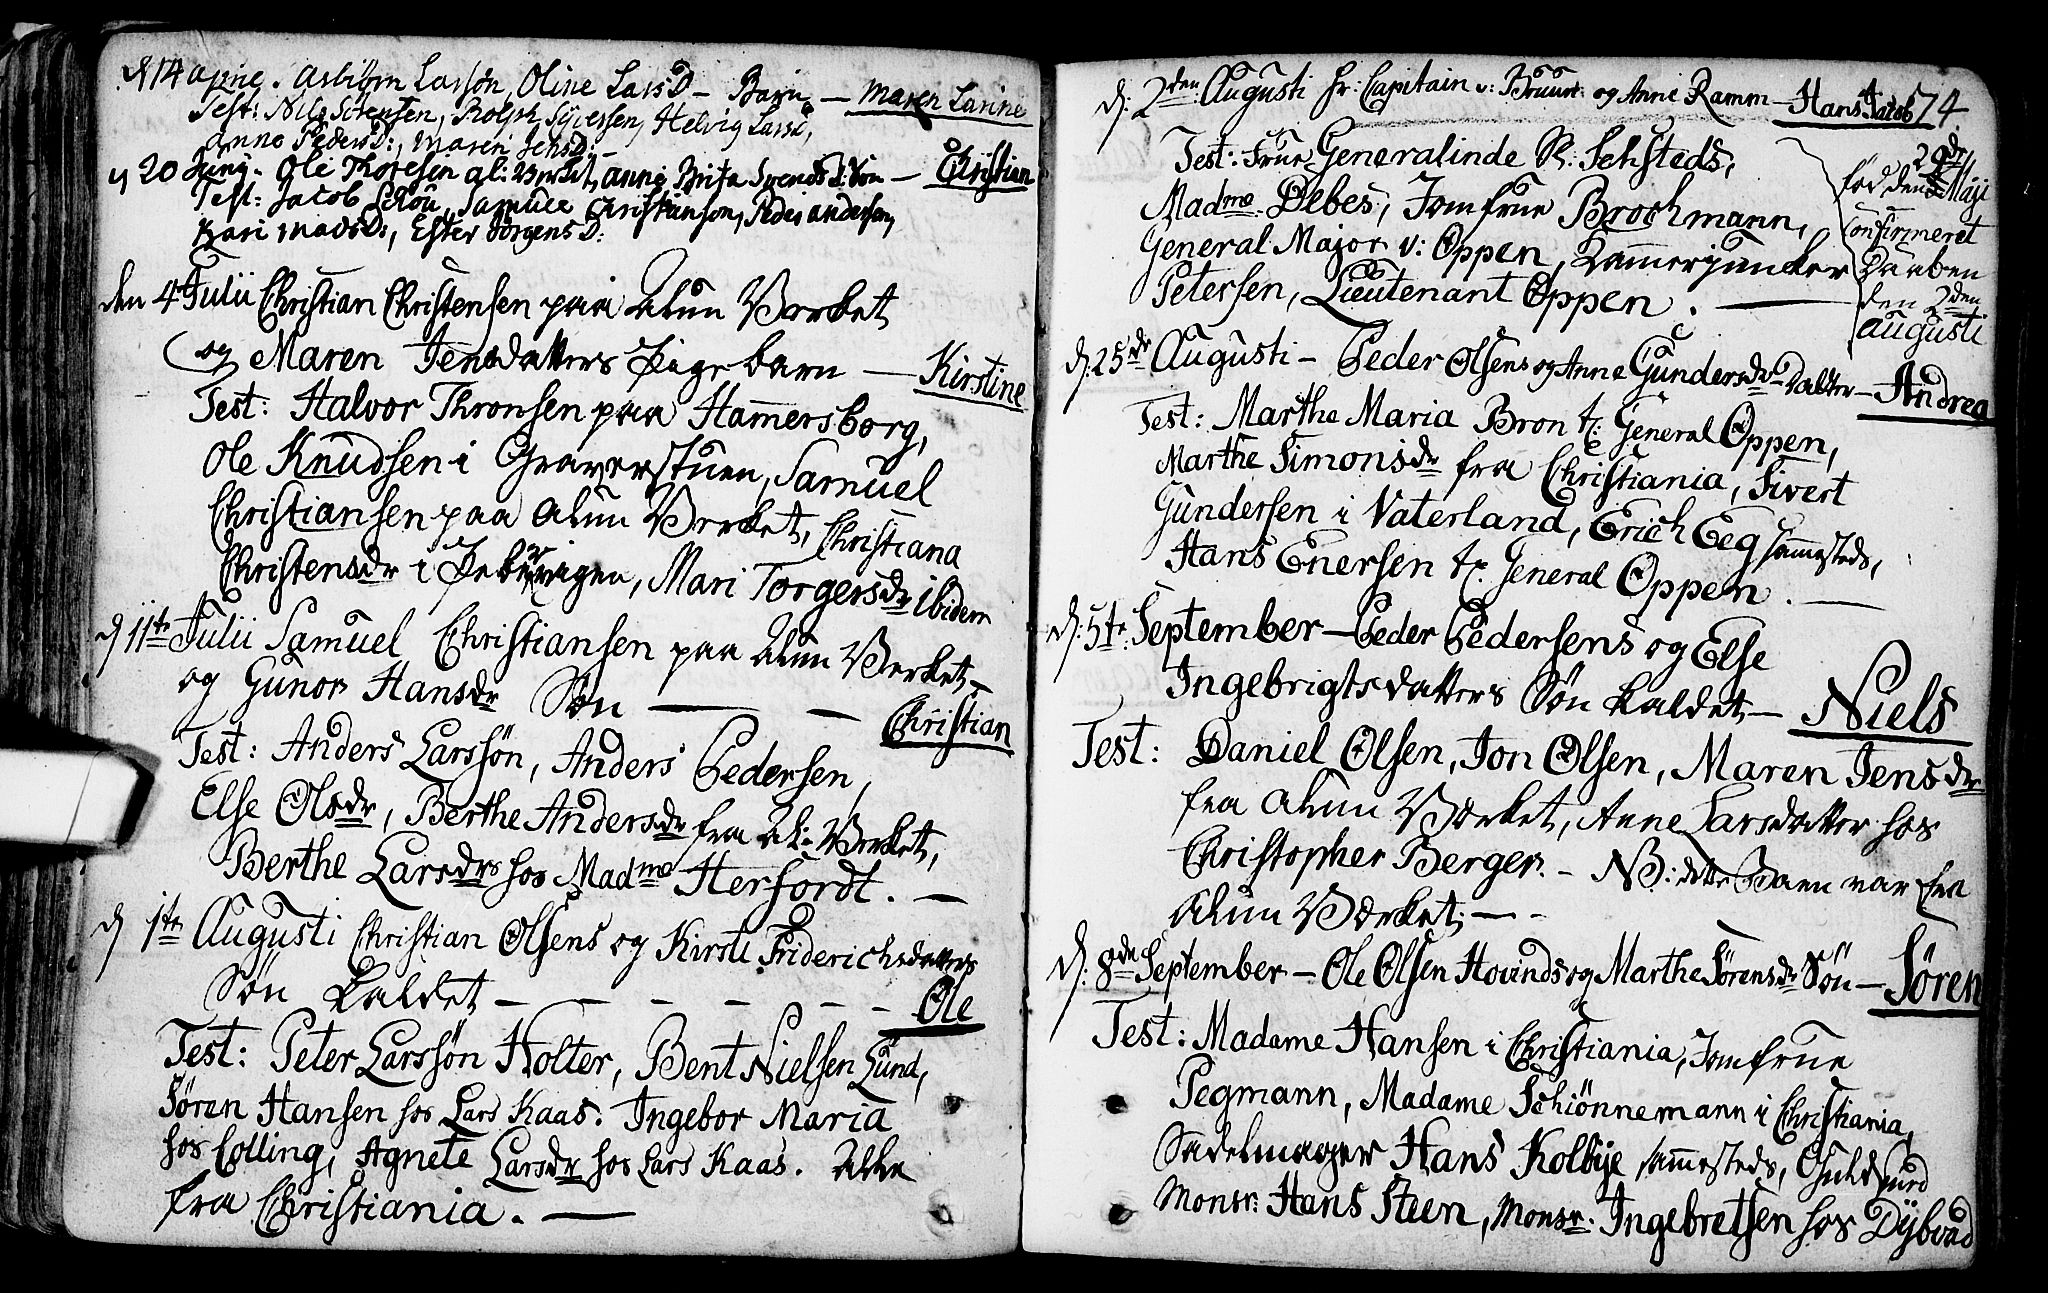 d 14 April. Asbiörn Larsön, Oline Lars D – Barn – Maren Larine
Test: Nils Sörensen, Rolph Syversen, Helvig Lars D,
Anne Peders D:, Maren Jens D: –
d 20 Junij. Ole Thoresen al: Verket, Anne Brita Svends D: Sön – Christian
Test: Jacob Schou, Samuel Christianson, Peder Andersen,
Kari Mads D:, Ester Jörgens D:
den 4 Julii Christian Christensen paa Alun Værket
og Maren Jensdatters Pigebarn — Kirstine
Test: Halvor Thronsen paa Hamersborg,
Ole Knudsen i Graverstuen, Samuel
Christiansen paa Alun Værket, Christiana
Christensdr i Pebervigen, Mari Torgersdr ibidem
d 11te Julii Samuel Christiansen paa Alun Værket –
og Gunor Hansdr Sön — – Christian
Test: Anders Larssön, Anders Pedersen,
Else Olsdr, Berthe Andersdr fra Al: Verket,
Berthe Larsdrs hos Madme Herfordt. —
d 1te Augusti Christian Olsens og Kirsti Friderichsdatters
Sön kaldet – – – – – – Ole
Test: Peter Larssön Holter, Bent Nielsen Lund,
Sören Hansen hos Lars Kaas. Ingebor Maria
hos Colling, Agnete Larsdr hos Lars Kaas. Alle
fra Christiania. —
d: 2den Augusti Hr: Capitain v: Bruun og Anne Ramm – Hans Jacob 74
Test: Frue Generalinde S: Sehsteds,
Madme: Debes, Jomfrue Brochmann,
General-Major v: Oppen, Kamerjunker
Petersen, Lieutenant Oppen. —
fød den 29de Maji
Confirmeret
Daaben
den 2den
Augusti
d: 25de Augusti – Peder Olsens og Anne Gundersdr Datter – Andrea
Test: Marthe Maria Bron t: General Oppen,
Marthe Simonsdr fra Christiania, Sivert
Gundersen i Vaterland, Erich Eeg samesteds,
Hans Enersen t: General Oppen. —
d: 5te: September – Peder Pedersens og Else
Ingebrigtsdatters Sön kaldet – Niels
Test: Daniel Olsen, Jon Olsen, Maren Jensdr
fra Alun Værket, Anne Larsdatter hos
Christopher Berger. – NB: dette Barn var fra
Alun Værket. — -
d: 8de September – Ole Olsen Hovinds og Marthe Sörensdr Sön – Sören
Test: Madame Hansen i Christiania, Jomfrue
Pegmann, Madame Schiönnemann i Christiania,
Sadelmager Hans Kolbye samesteds, Guldsmed
Monsr: Hans Steen, Monsr. Ingebretsen hos Dybvad